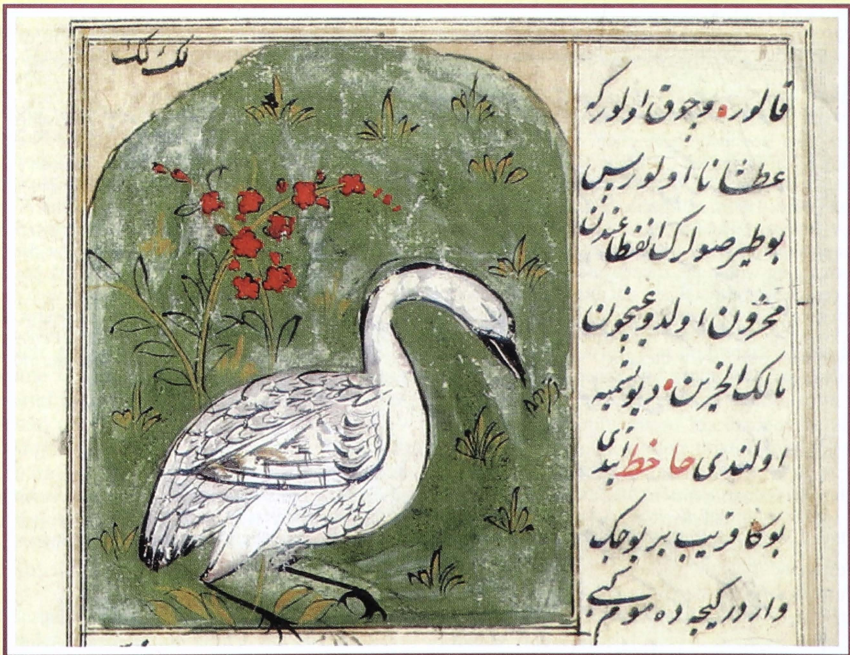 لك لك
قالور وچوق اولور که
عطشانا اولور پس
بو طیر صولرك انقطاعندن
محزون اولدوغیچون
مالك الحزین دیو تسمیه
اولندی جاحظ ایتدی
بوکا قریب بر بوجك
واردر کیجه ده موم کبی